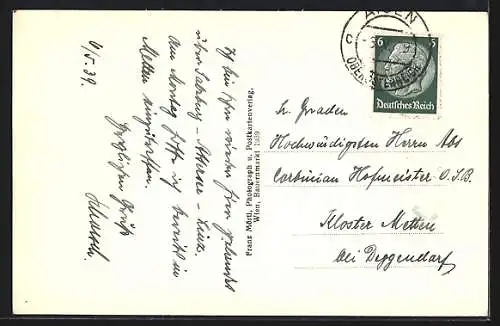 9/5.39.
Ich bin schon wieder hier gelandet
über Salzburg – Attersee – Linz.
Am Montag hoffe ich bereits in
Metten einzutreffen.
Herzlichen Gruß
Franz Mörtl, Photograph u. Postkartenverlag,
Wien, Bauernmarkt 1a39
AIGEN
OBER
6
Deutsches Reich
Sr. Gnaden
Hochwürdigsten Herrn Abt
Corbinian Hofmeister O.S.B.
Kloster Metten
bei Deggendorf